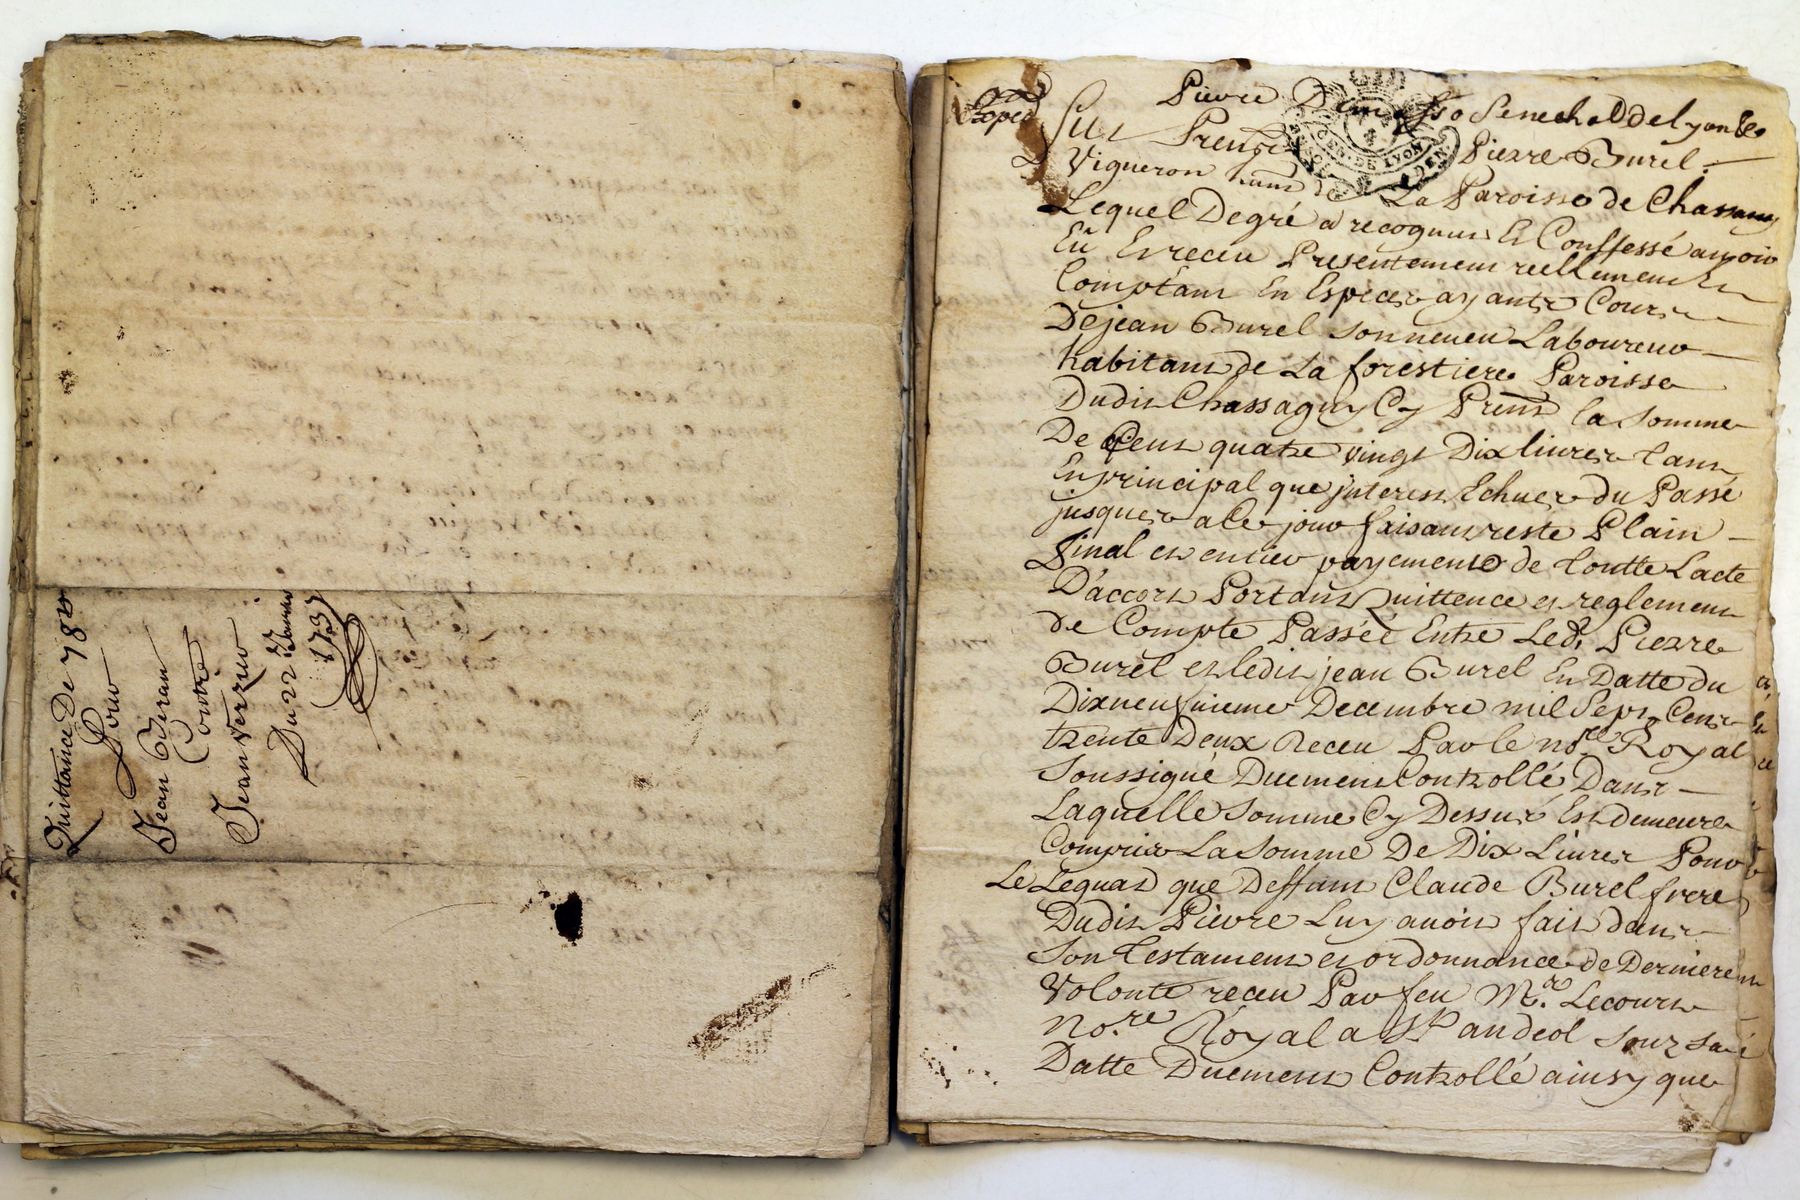 Quittance De 78#
Pour
Jean
Contre
Jean Verzieu
Du 22 Janvier
1737
Expedié
Pierre Senechal de Lyon &c
Fut Present Pierre Burel
Vigneron La Paroisse de Chassagny
Lequel Degré a recognu Et Confessé avoir
Eü Et receu Presentement reellement Et
Comptant En Especes ayants Cours
De jean Burel son neueu Laboureur
habitant de La forestiere Paroisse
Dudit Chassagny Cy Prent la somme
De Cent quatre vingt Dix liures tant
En principal que jnterest Echues du Passé
jusques a Ce jour faisant reste Plain
final et entier payement de toutte Lacte
D'accort Portant Quittence et reglement
de Compte Passée Entre Led. Pierre
Burel et ledit jean Burel En Datte du
Dixneufuieme Decembre mil Sept Cent
trente Deux Receu Par le nore Royal
Soussigné Duement Controllé Dans
Laquelle Somme Cy Dessus Est Demeure
Comprise La Somme De Dix Liures Pour
Le Leguat que Deffunt Claude Burel frere
Dudit Pierre Luy auoit fait dans
Son Testament et ordonnance de Derniere
Volonté receu Par feu Me. Lecourt
No.re Royal a St andeol souz sa
Datte Duement Controllé ainsy que